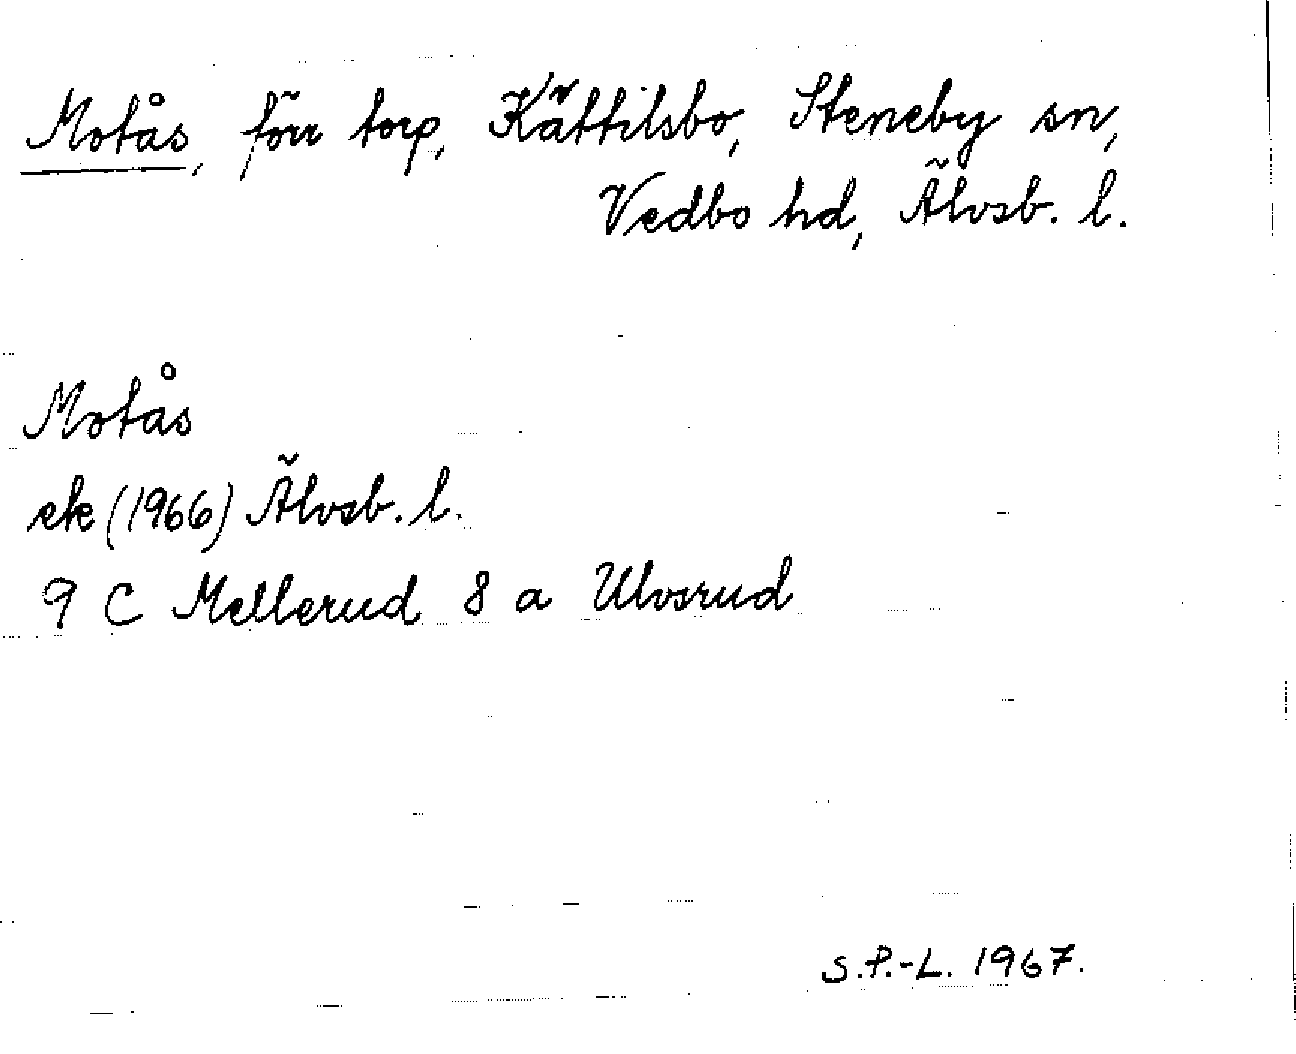 Motås, förr torp, Kättilsbo, Steneby sn,
Vedbo hd, Älvsb. l.
Motås
ek (1966) Älvsb. l.
9 C Mellerud 8 a Ulvsrud
S.P.-L. 1967.